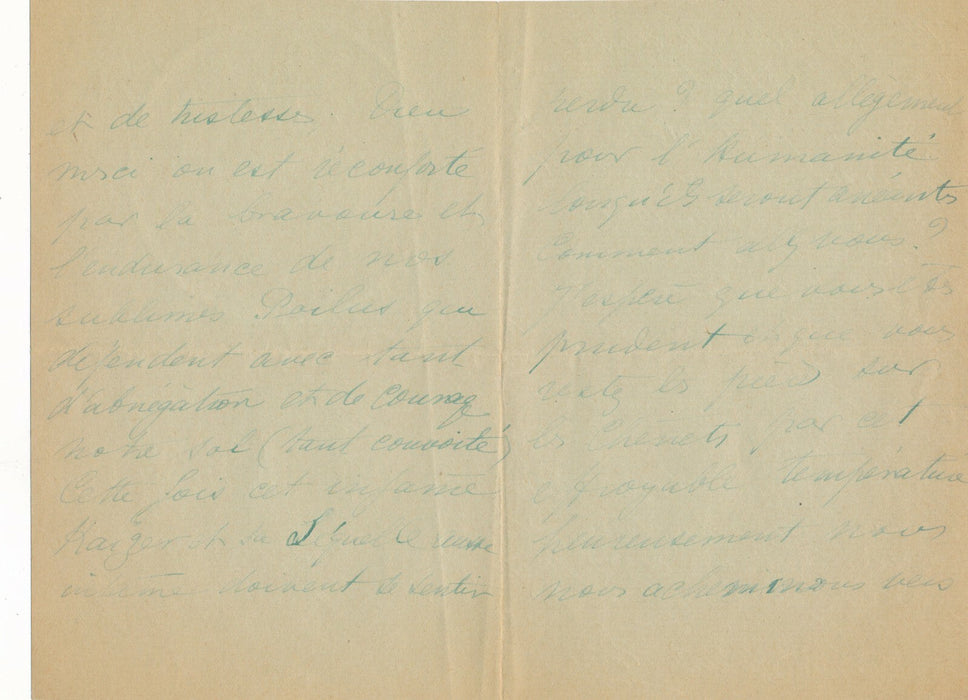 et de tristesses, Dieu
merci on est réconforté
par la bravoure et
l'endurance de nos
sublimes Poilus qui
défendent avec tant
d'abnégation et de courage
notre sol (tant convoité)
Cette fois cet infame
Kaiser et sa Séquelle aussi
infame doivent se sentir
perdu ? quel allègement
pour l'Humanité
lorsqu'ils seront anéantis
Comment alz vous ?
J'espère que vous êtes
prudent et que vous
restz les pieds sur
les Chenets par cet
effroyable température
heureusement nous
nous acheminons vers